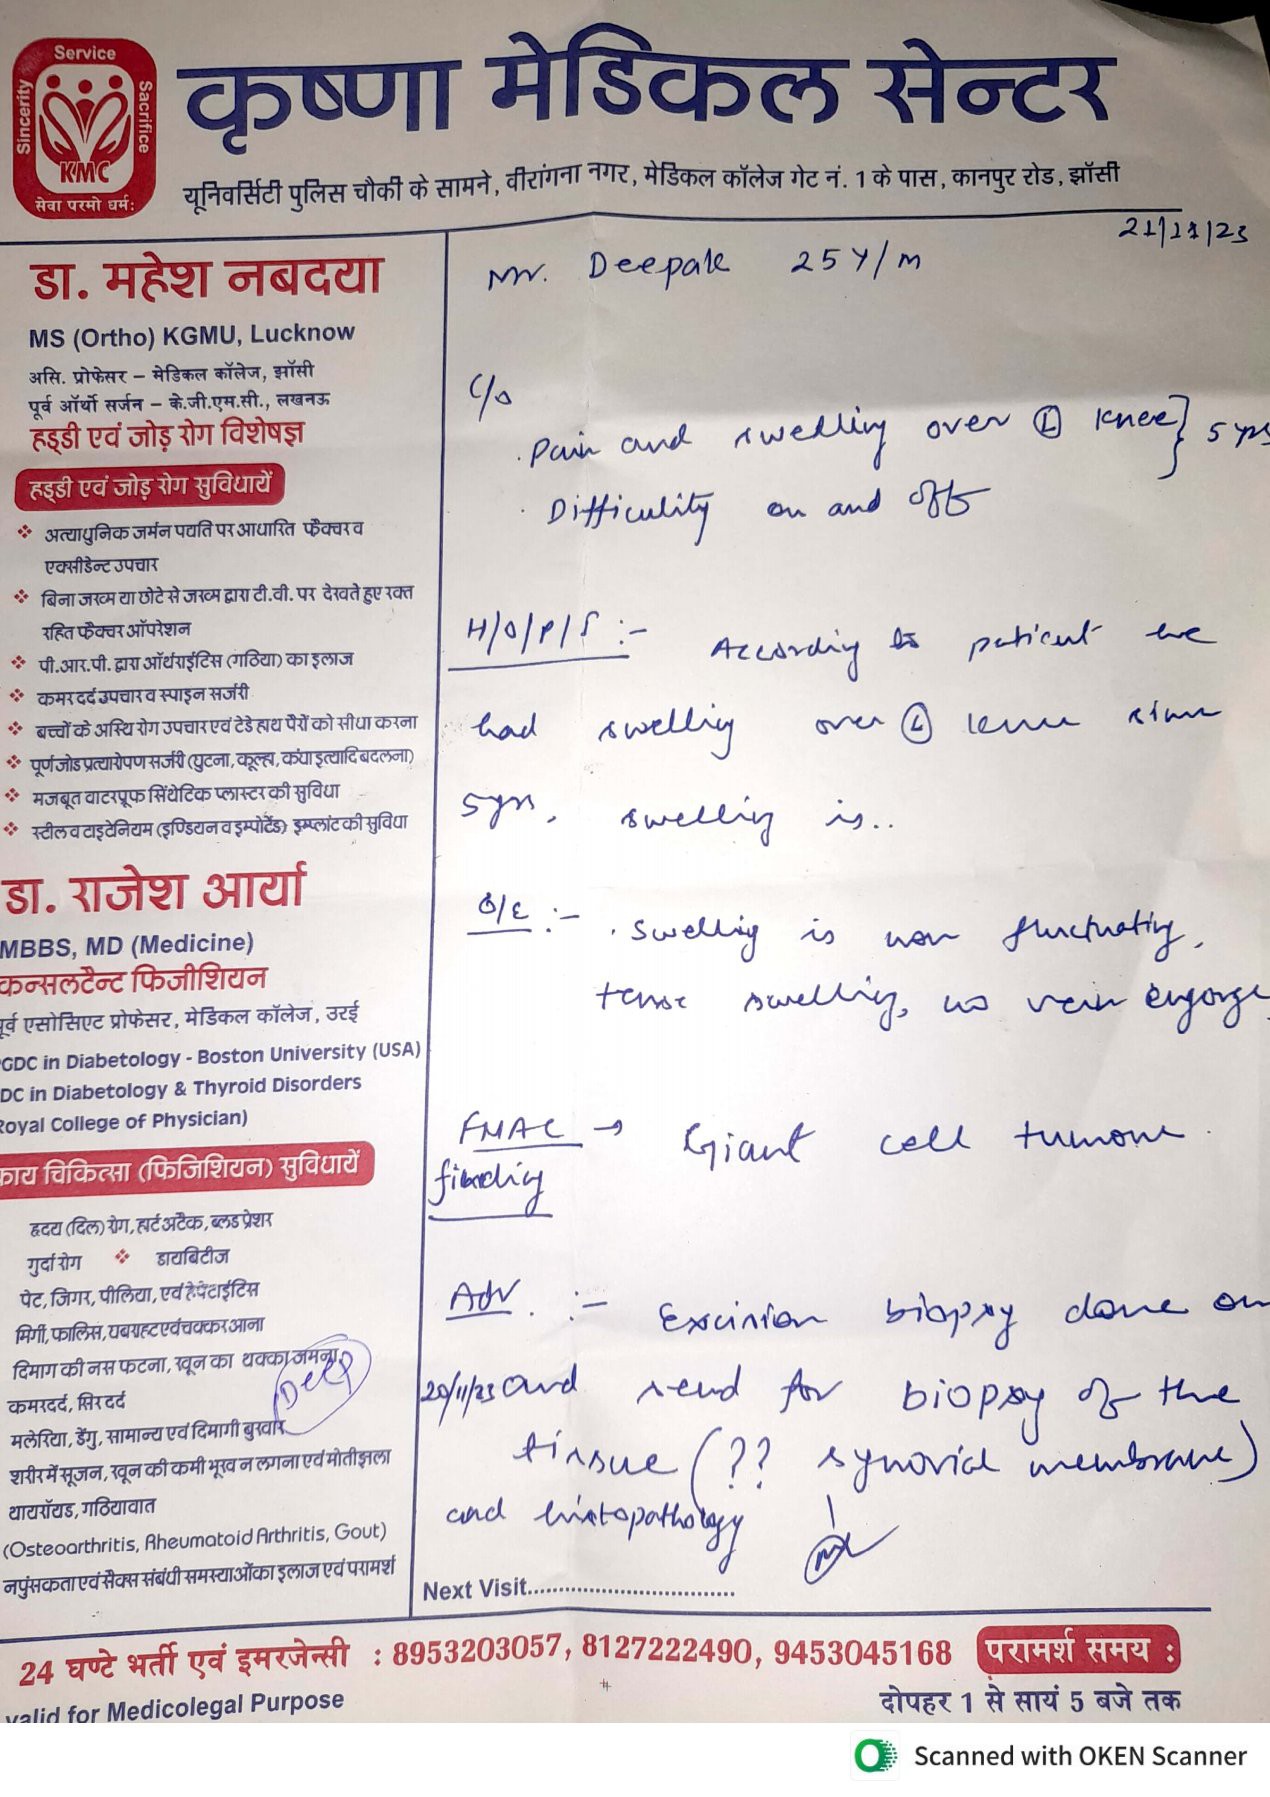 Service
Sincerity
Sacrifice
KMC
सेवा परमो धर्म:
कृष्णा मेडिकल सेन्टर
यूनिवर्सिटी पुलिस चौकी के सामने, वीरांगना नगर, मेडिकल कॉलेज गेट नं. 1 के पास, कानपुर रोड, झाँसी
21/11/23
Mr. Deepak 25Y/M
डा. महेश नबदया
MS (Ortho) KGMU, Lucknow
असि. प्रोफेसर – मेडिकल कॉलेज, झाँसी
पूर्व ऑर्थो सर्जन – के.जी.एम.सी., लखनऊ
हड्डी एवं जोड़ रोग विशेषज्ञ
हड्डी एवं जोड़ रोग सुविधायें
❖ अत्याधुनिक जर्मन पद्यति पर आधारित फ्रैक्चर व
एक्सीडेन्ट उपचार
❖ बिना जख्म या छोटे से जख्म द्वारा टी.वी. पर देखते हुए रक्त
रहित फ्रैक्चर ऑपरेशन
❖ पी.आर.पी. द्वारा ऑर्थराईटिस (गठिया) का इलाज
❖ कमर दर्द उपचार व स्पाइन सर्जरी
❖ बच्चों के अस्थि रोग उपचार एवं टेडे हाथ पैरों को सीधा करना
❖ पूर्ण जोड प्रत्यारोपण सर्जरी (घुटना, कूल्हा, कंधा इत्यादि बदलना)
❖ मजबूत वाटरप्रूफ सिंथेटिक प्लास्टर की सुविधा
❖ स्टील व टाइटेनियम (इण्डियन व इम्पोर्टेड) इम्प्लांट की सुविधा
डा. राजेश आर्या
MBBS, MD (Medicine)
कन्सलटैन्ट फिजीशियन
पूर्व एसोसिएट प्रोफेसर, मेडिकल कॉलेज, उरई
GDC in Diabetology - Boston University (USA)
DC in Diabetology & Thyroid Disorders
Royal College of Physician)
काय चिकित्सा (फिजिशियन) सुविधायें
हृदय (दिल) रोग, हार्ट अटैक, ब्लड प्रेशर
गुर्दा रोग ❖ डायबिटीज
पेट, जिगर, पीलिया, एवं हेपेटाईटिस
मिर्गी, फालिस, घबराहट एवं चक्कर आना
दिमाग की नस फटना, खून का थक्का जमना
कमरदर्द, सिरदर्द
मलेरिया, डेंगु, सामान्य एवं दिमागी बुखार
शरीर में सूजन, खून की कमी भूख न लगना एवं मोतीझला
थायरॉयड, गठियावात
(Osteoarthritis, Rheumatoid Arthritis, Gout)
नपुंसकता एवं सैक्स संबंधी समस्याओं का इलाज एवं परामर्श
C/o
. Pain and swelling over Ⓛ knee} 5 yrs
. Difficulity on and off
H/O/P/I :- According to patient we
had swelling over Ⓛ knee since
5yrs, swelling is..
O/E :- . Swelling is non fluctuating,
tense swelling, no vein engorge
FNAC → Giant cell tumour.
finding
Adv. :- Excision biopsy done on
20/11/23 and send for biopsy of the
tissue (?? synovial membrane)
and histopathology
Next Visit
24 घण्टे भर्ती एवं इमरजेन्सी : 8953203057, 8127222490, 9453045168
परामर्श समय :
valid for Medicolegal Purpose
दोपहर 1 से सायं 5 बजे तक
Scanned with OKEN Scanner